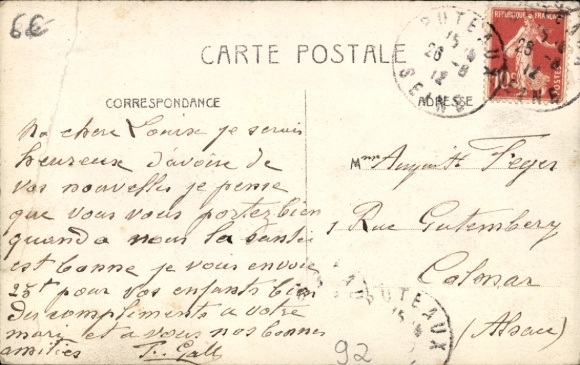 6€
CARTE POSTALE
REPUBLIQUE FRANÇAISE
10c
POSTES
PUTEAUX
15
26-8
12
SEINE
CORRESPONDANCE
ADRESSE
Ma chere Louise je serais
heureux d'avoire de
vos nouvelles je pense
que vous vous portez bien
quand a nous la santée
est bonne je vous envoie
25f pour vos enfants bien
Des compliments a votre
mari et a vous nos bonnes
amitiés
Gall
Mme August Feger
1 Rue Gutembery
Colmar
(Alsace)
PUTEAUX
15
92